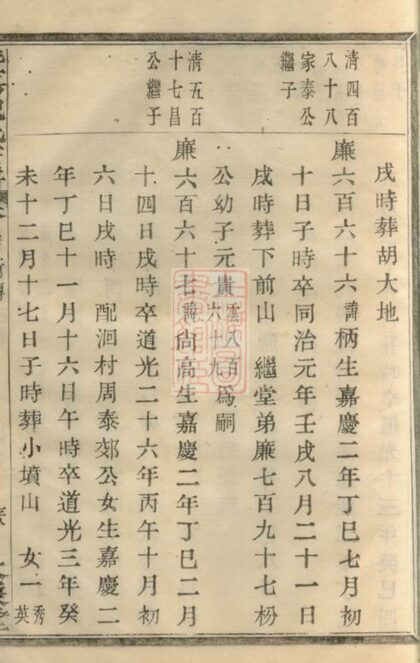 戌時葬胡大地
清四百
八十八
家泰公
繼子
廉六百六十六諱柄生嘉慶二年丁巳七月初
十日子時卒同治元年壬戌八月二十一日
戌時葬下前山 繼堂弟廉七百九十七枌
公幼子元貴雲八百六十九爲嗣
清五百
十七昌
公繼子
廉六百六十七諱尙高生嘉慶二年丁巳二月
十四日戌時卒道光二十六年丙午十月初
六日戌時 配洄村周泰郊公女生嘉慶二
年丁巳十一月十六日午時卒道光三年癸
未十二月十七日子時葬小墳山 女一秀英